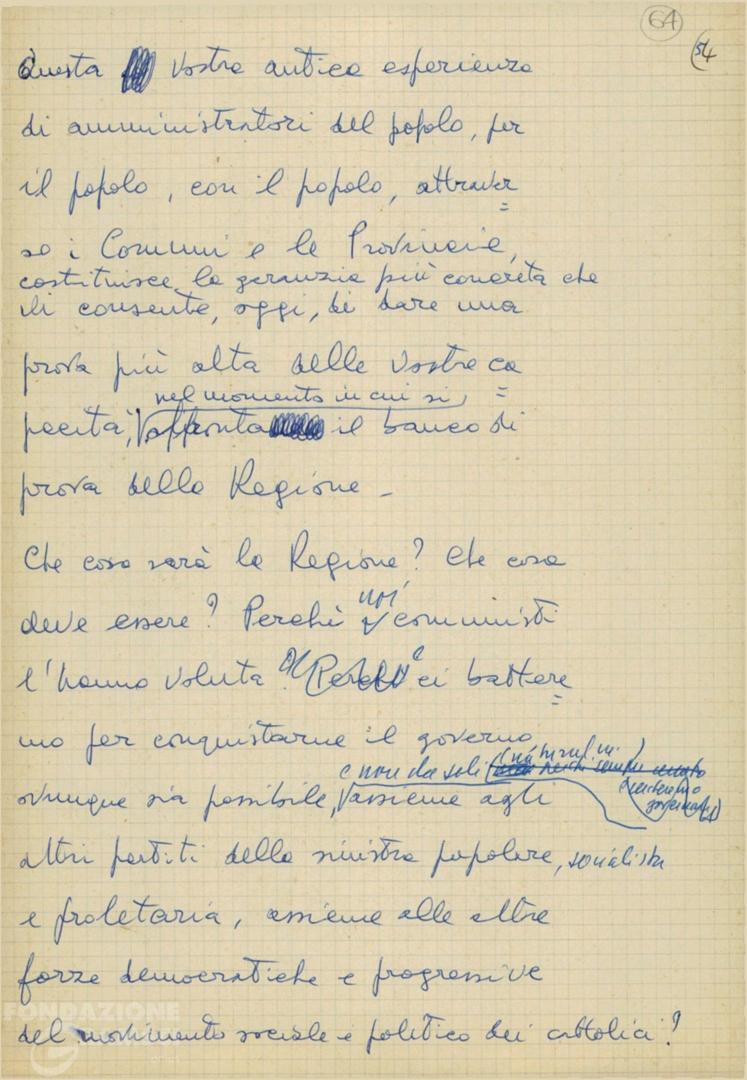 64
54
Questa vostra antica esperienza
di amministratori del popolo, per
il popolo, con il popolo, attraver=
so i Comuni e le Provincie,
costituisce la garanzia più concreta che
vi consente, oggi, di dare una
prova più alta delle vostre ca=
nel momento in cui si
pacità, affronta il banco di
prova della Regione -
Che cosa sarà la Regione? Che cosa
deve essere? Perchè noi comunisti
l'hanno voluta e ci battere=
mo per conquistarne il governo
e non da soli
ovunque sia possibile, assieme agli
altri partiti della sinistra popolare, socialista
e proletaria, assieme alle altre
forze democratiche e progressive
del movimento sociale e politico dei cattolici?
FONDAZIONE